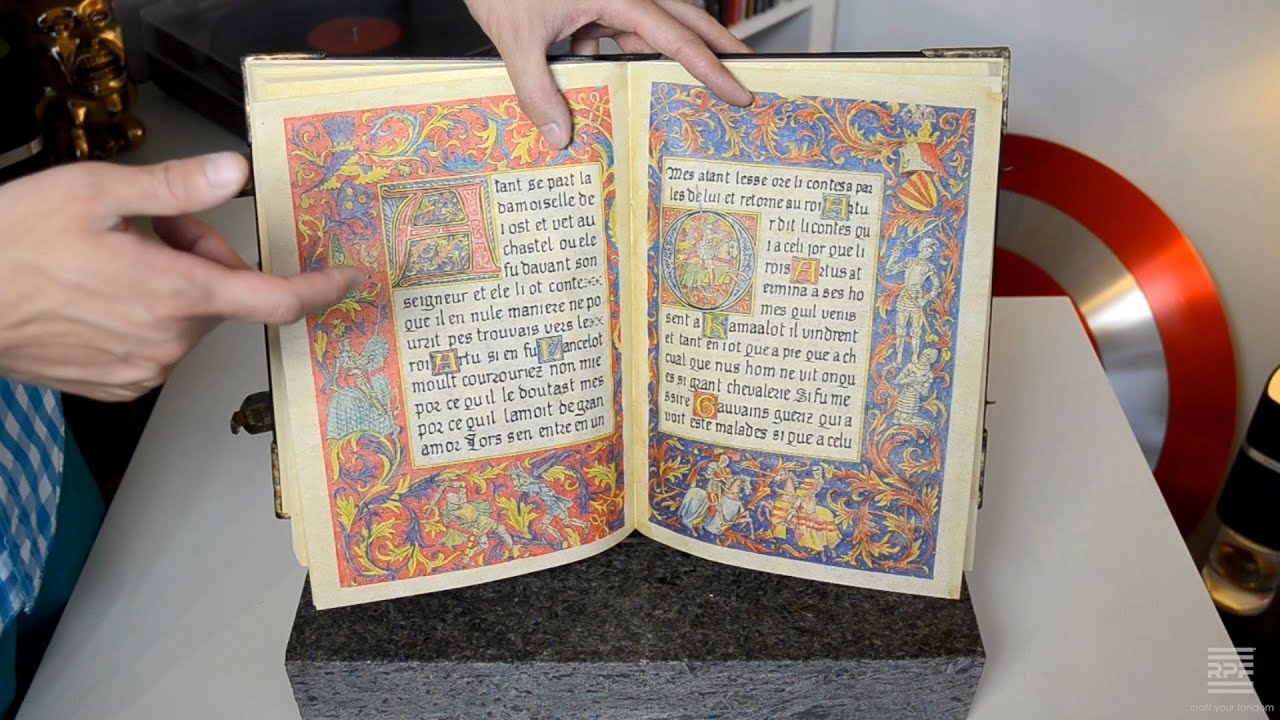 Atant se part la
damoiselle de
l ost et vet au
chastel ou ele
fu davant son
seigneur et ele li ot conte
que il en nule maniere ne po
urrit pes trouvais vers le
roi Artu si en fu Lancelot
moult courrouriez non mie
por ce qu il le doutast mes
por ce qu il lamoit de gran
amor Lors s en entre en un
Mes atant lesse ore li contes a par
les de lui et retorne au roi Artu
O r dit li contes qu
i a celi jor que li
rois Artus at
ermina a ses ho
mes quil venis
sent a Kamaalot il vindrent
et tant en i ot que a pie que a ch
cual que nus hom ne vit onqu
es si grant chevalerie Si fu me
ssire Gauvains queriz qui a
voit este malades si que a celu
RPF
craft your fandom